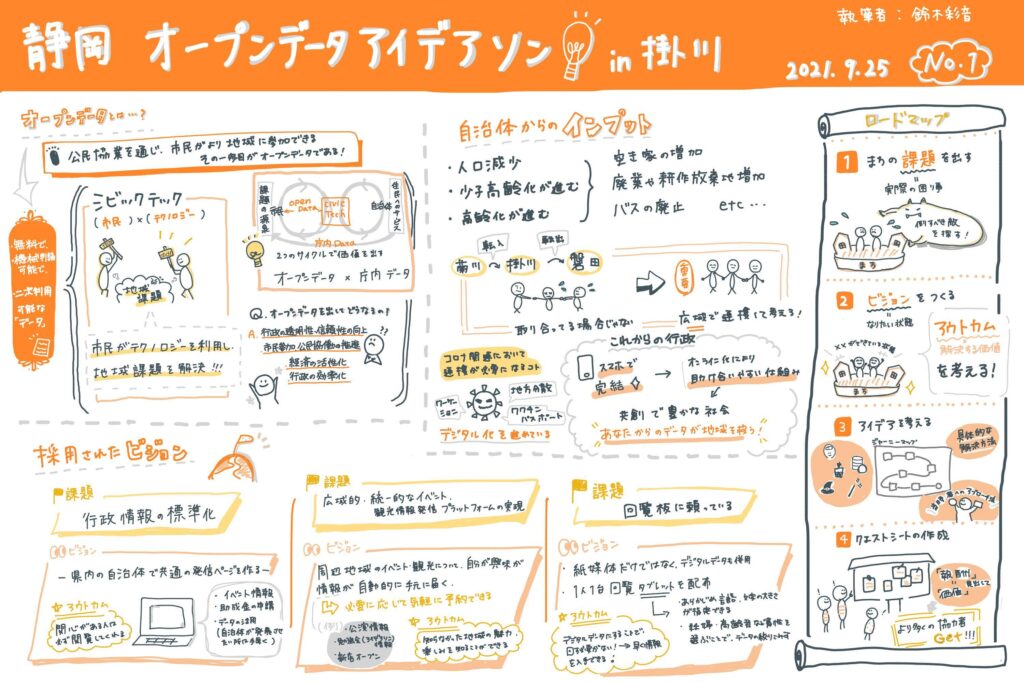 執筆者：鈴木彩音
静岡 オープンデータ アイデアソン in 掛川
2021.9.25
No.1
オープンデータとは…？
公民協業を通じ、市民がより地域に参加できる
その一歩目がオープンデータである！
・無料で、
・機械判読
可能で、
・二次利用
可能な
「データ」
シビックテック
(市民)×(テクノロジー)
地域
課題
市民がテクノロジーを利用し、
地域課題を解決!!!
課題の源泉
市民
open
Data
civic
Tech
自治体
住民へのサービス
庁内Data
2つのサイクルで価値を出す
オープンデータ × 庁内データ
Q. オープンデータを出してどうなるの？
A. 行政の透明性、信頼性の向上
市民参加、公民協働の推進
経済の活性化
行政の効率化
??
自治体からのインプット
・人口減少
・少子高齢化が進む
・高齢化が進む
空き家の増加
廃業や耕作放棄地増加
バスの廃止 etc…
転入
転出
菊川
掛川
磐田
取り合ってる場合じゃない
広域で連携して考える！
コロナ関連において
連携が必要になるコト
ワーケーション
地方分散
ワクチン
パスポート
デジタル化を進めている
これからの行政
スマホで
完結
オンライン化により
助け合いやすい仕組み
共創で豊かな社会
あなたからのデータが地域を救う！
ロードマップ
1 まちの課題を出す
実際の困り事
倒すべき敵
を探す！
まち
2 ビジョンをつくる
なりたい状態
××ができている状態
まち
アウトカム
解決する価値
を考える！
3 アイデアを考える
ジャーニーマップ
具体的な
解決方法
4 クエストシートの作成
「報酬」
見出して
「価値」
より多くの協力者
Get!!!
採用されたビジョン
課題
行政情報の標準化
ビジョン
ー県内の自治体で共通の発信ページを作るー
アウトカム
関心がある人は
必ず閲覧してくれる
・イベント情報
・助成金の申請
・データの活用
課題
広域的・統一的なイベント、
観光情報発信プラットフォームの実現
ビジョン
周辺地域のイベント・観光について、自分の興味が
情報が自動的に手元に届く。
必要に応じて気軽に予約できる
(例)・公演情報
・新店オープン
アウトカム
知らなかった地域の魅力、
楽しみを知ることができる
課題
回覧板に頼っている
ビジョン
・紙媒体だけではなく、デジタルデータも併用
・1人1台 回覧タブレットを配布
・あらかじめ言語・文字の大きさ
が指定できる
・妊婦・高齢者など属性を
選ぶことで、データの絞りこみができる
アウトカム
デジタルデータにすることで、